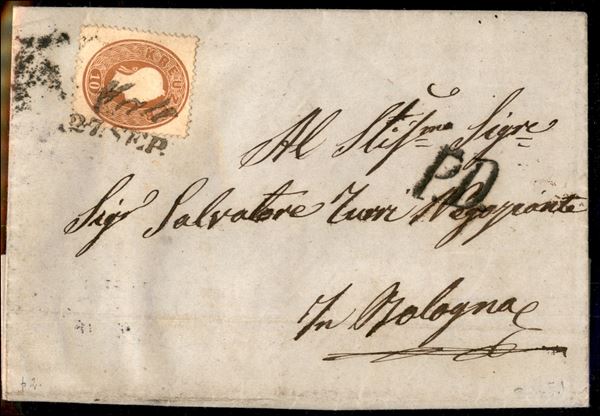 10 KREU
27. SEP.
Al Stim͂o Sigre
P.D.
Sigr Salvatore Turri Negoziante
In Bologna